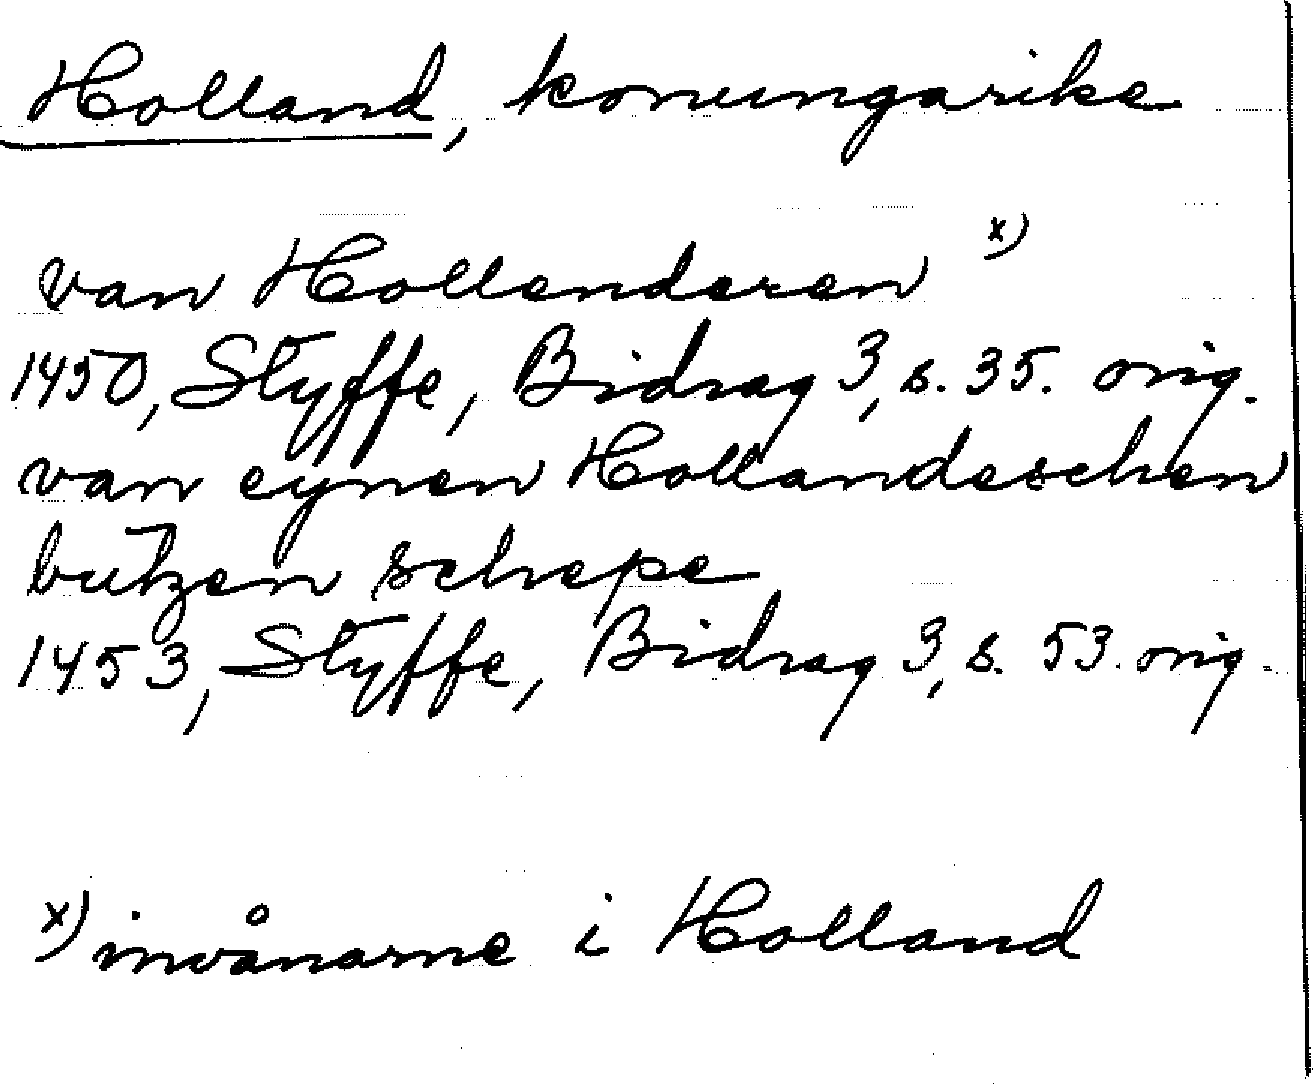 Holland, konungarike
van Hollenderen x)
1450, Styffe, Bidrag 3, s. 35. orig.
van eynen Hollandeschen
butzen schepe
1453, Styffe, Bidrag 3, s. 53. orig.
x) invånarne i Holland